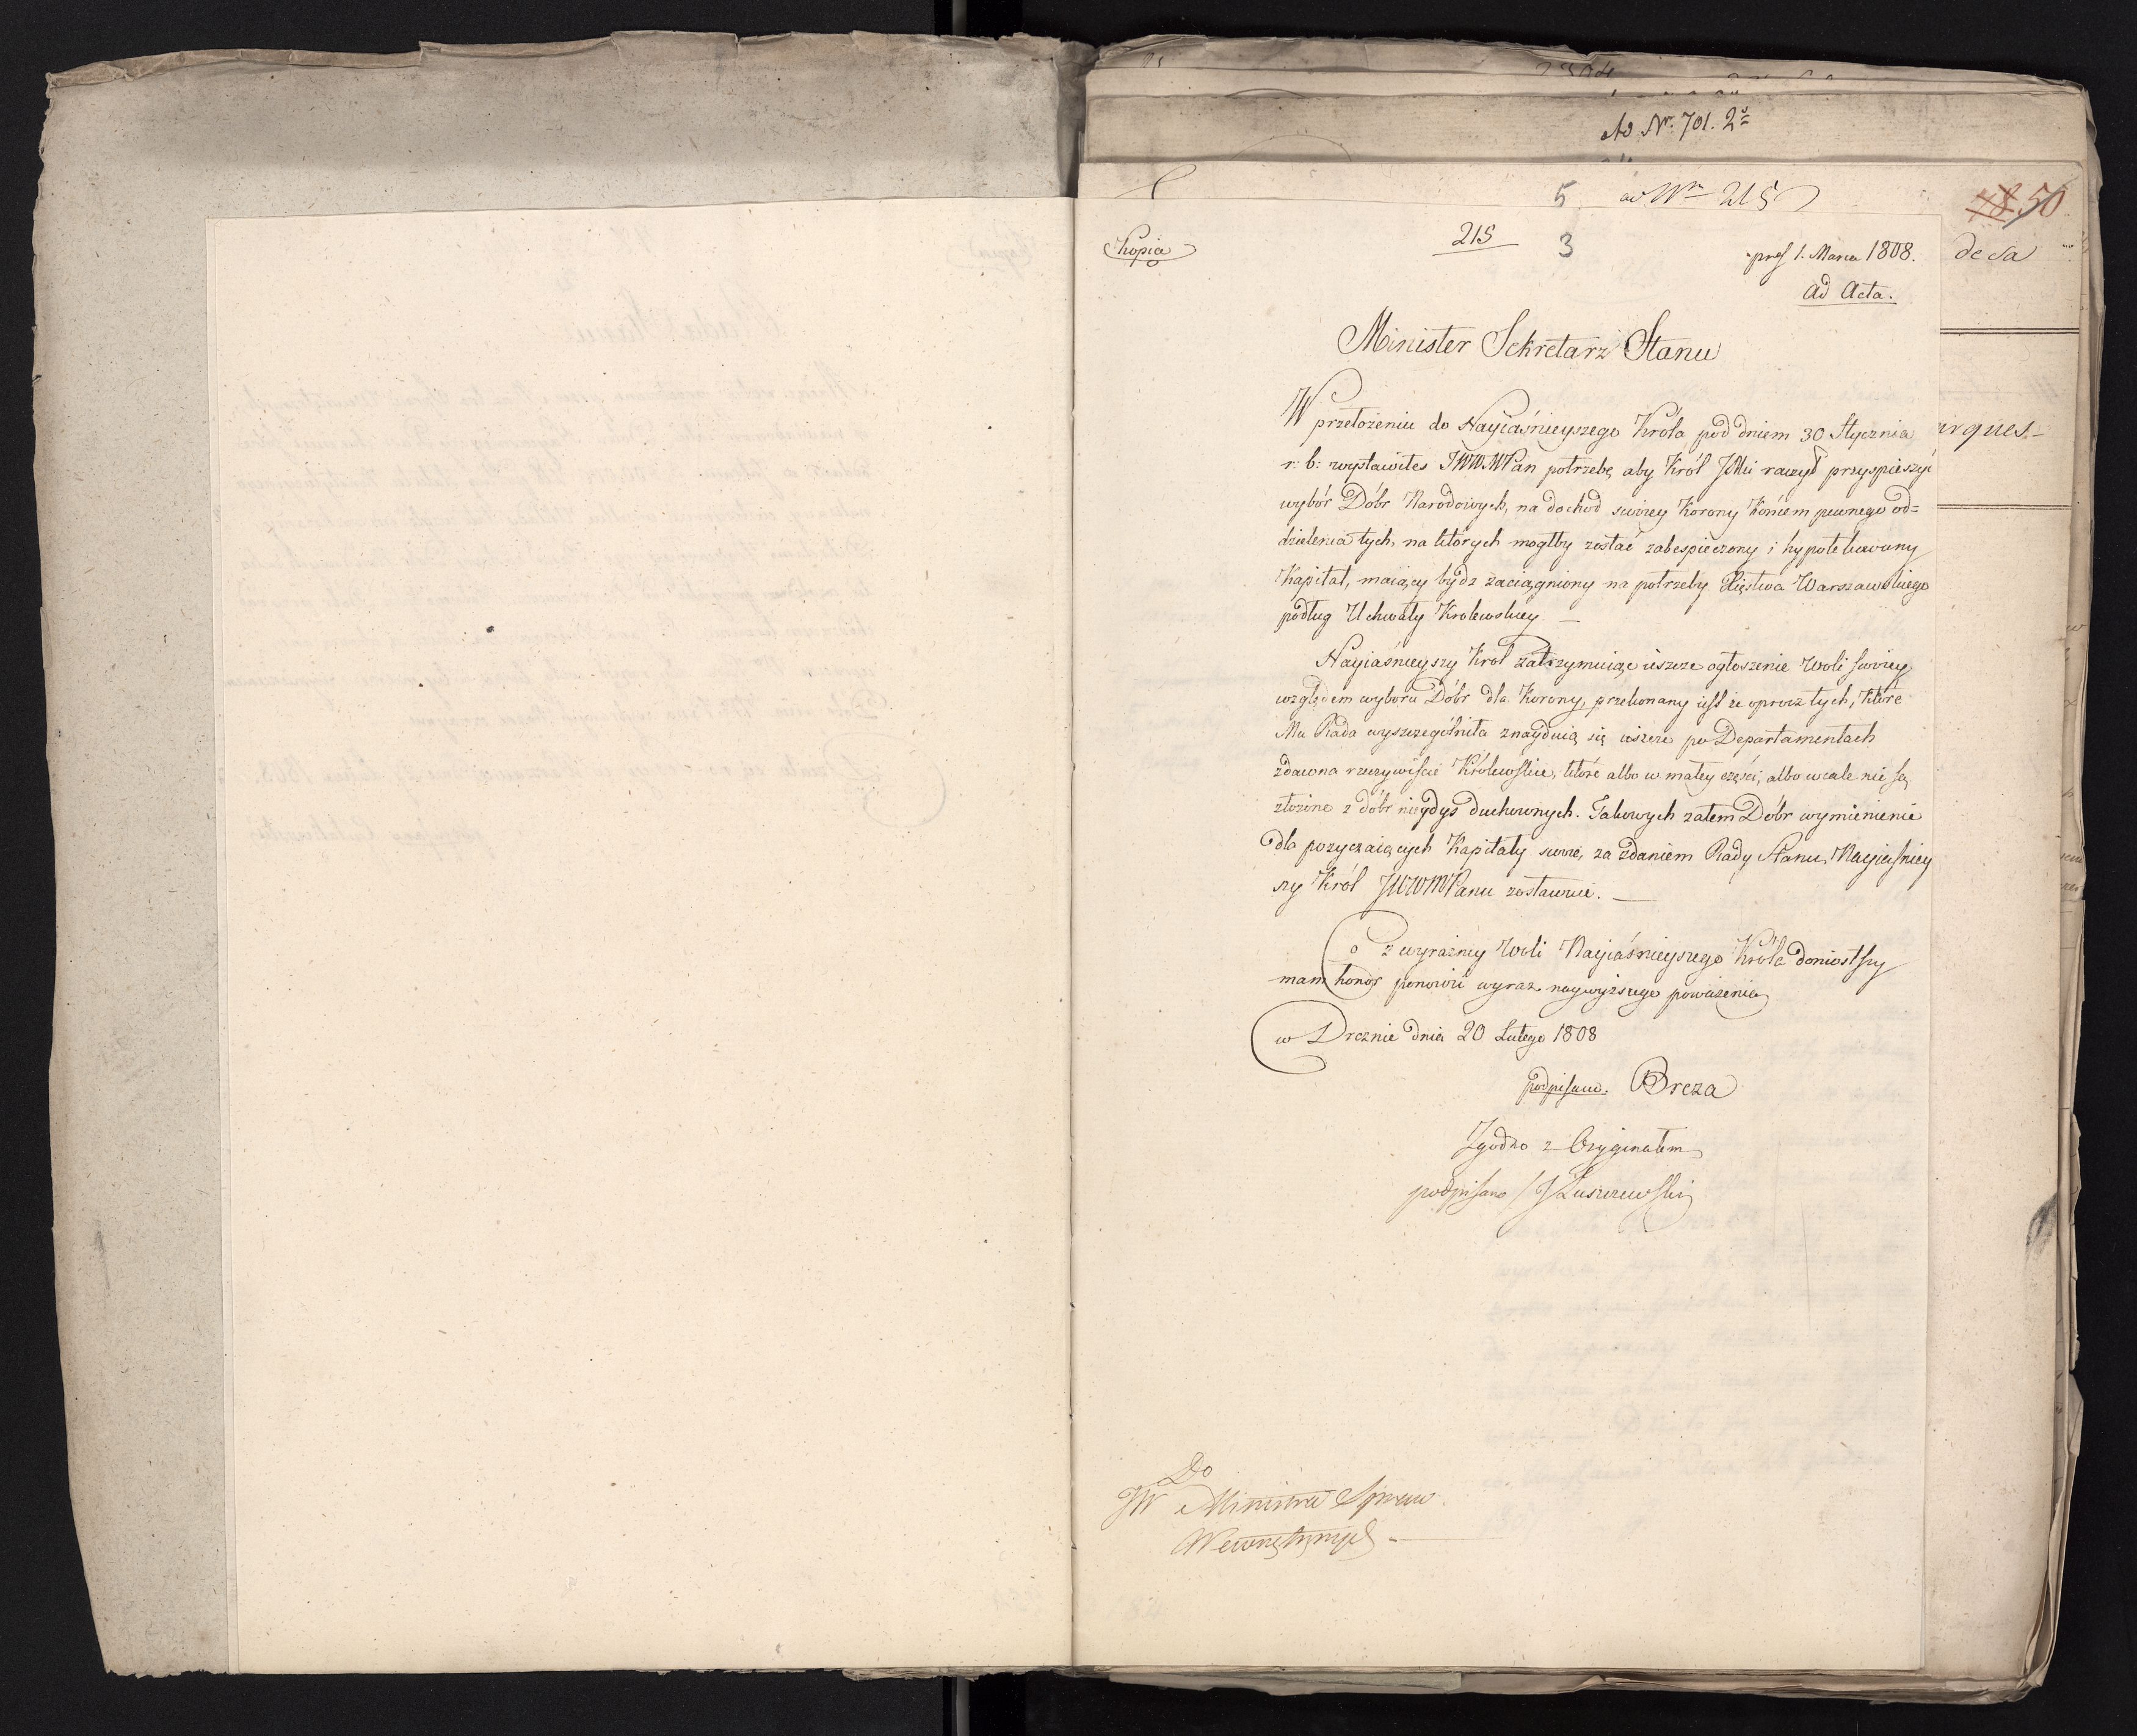 Ad Nr. 701. 2
5 ad Nr 215
50
215
3
Kopia
pres 1. Marca 1808.
Ad Acta.
de Sa
Minister Sekretarz Stanu
W przełożeniu do Nayiaśnieyszego Króla pod dniem 30 Stycznia
r: b: wystawiłes JWWMPan potrzebę aby Król JMci raczył przyspieszyć
wybór Dóbr Narodowych, na dochod swoiey Korony koncem pewnego od=
dzielenia tych, na których mogłby zostać zabespieczony i hypotekowany
Kapitał, maiący bydz zaciągniony na potrzeby Xięstwa Warszawskiego
podług Uchwały Krolewskiey —
Nayiaśnieyszy Król zatrzymuiąc ieszcze ogłoszenie Woli swoiey
względem wyboru Dóbr dla Korony, przekonany iest że oprocz tych, które
Mu Rada wyszczególniła znayduią się ieszcze po Departamentach
zdawna rzeczywiście Królewskie, które albo w małey części, albo wcale nie są
złożone z dóbr niegdyś duchownych. Takowych zatem Dóbr wymienienie
dla pozyczaiących Kapitały swoie, za zdaniem Rady Stanu, Nayiaśniey
szy Król JWWMPanu zostawuie. —
o z wyrazney Woli Nayiaśnieyszego Króla doniosłszy
mam honor ponowić wyraz naywyższego poważenia
w Dreznie dnia 20 Lutego 1808
podpisano. Breza
Zgodno z Oryginałem
podpisano / J Łuszczewski
Do
JW Ministra Spraw
Wewnętrznych —
arques—